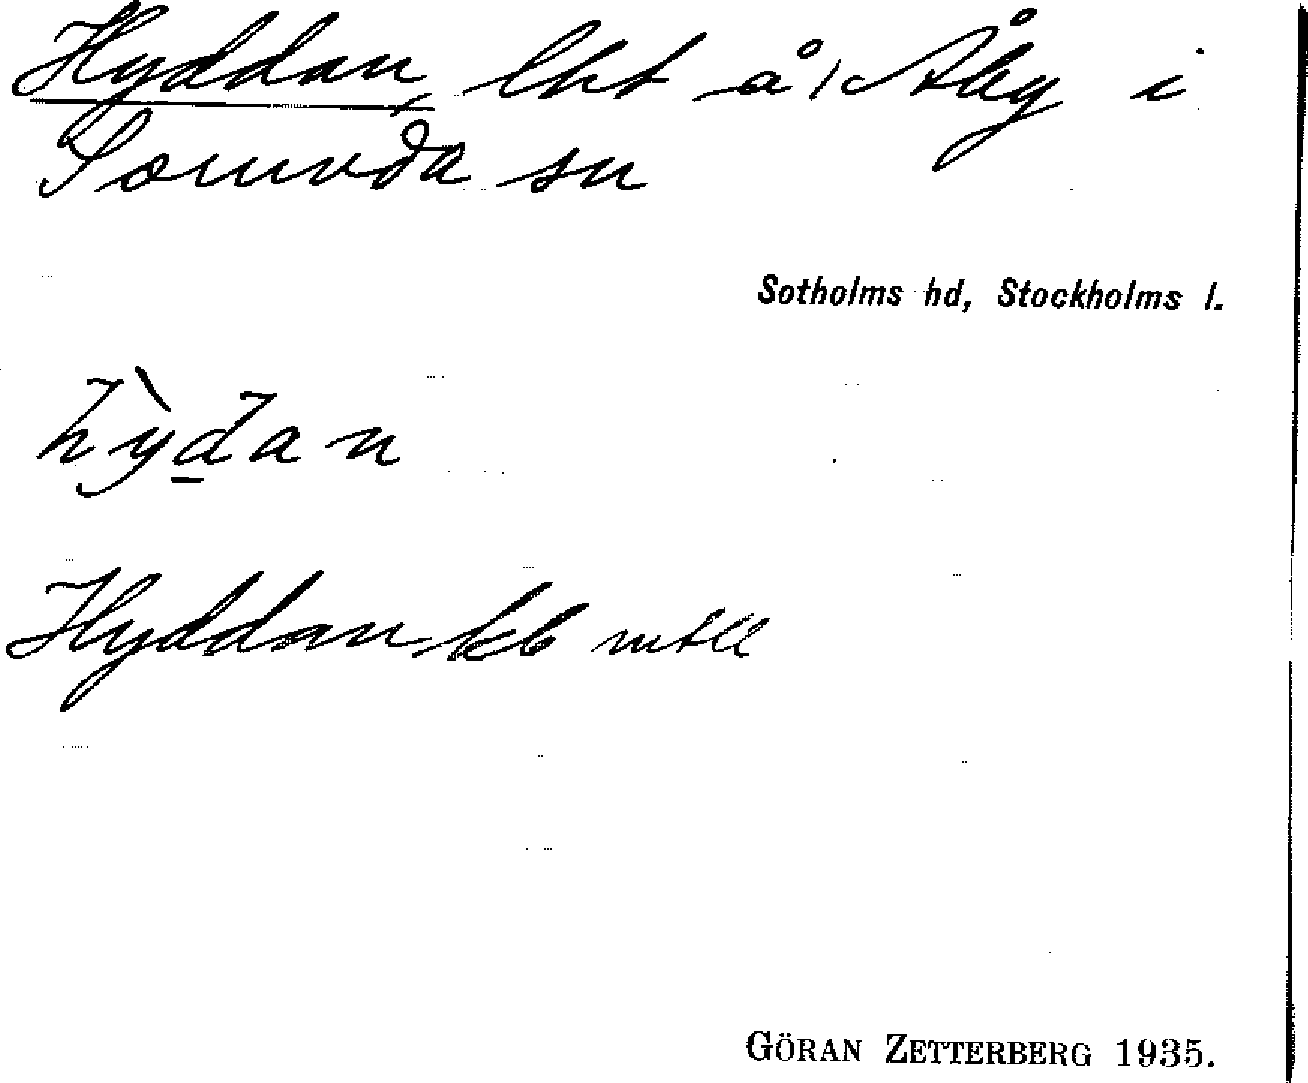 Hyddan, lht å Åby i
Sorunda sn
Sotholms hd, Stockholms l.
hỳdan
Hyddan kb mtll
GÖRAN ZETTERBERG 1935.